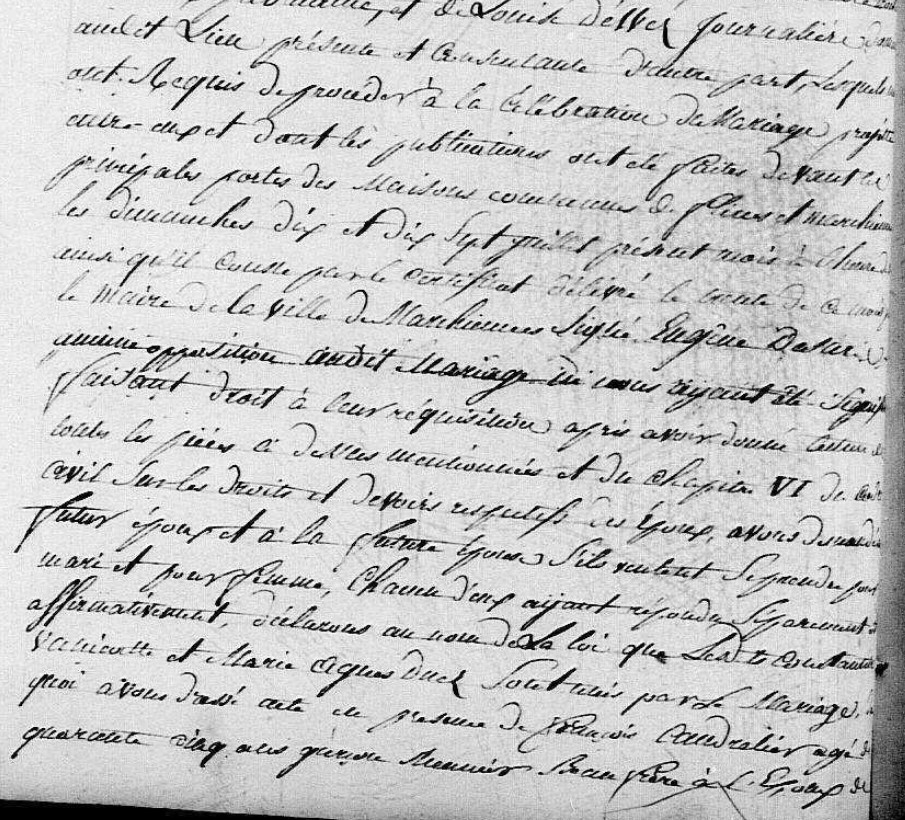 et de Louise Journalière
audit Lieu présente et consentante d'autre part, Lesquels
ont Requis de procéder à la Célébration du Mariage projetté
entre eux et dont les publications ont été faites devant les
principales portes des Maisons communes de flines et marchiennes
les dimanches dix et dix Sept juillet présent mois à l'heure de
ainsi qu'il conste par le certificat délivré le trente de ce mois
le maire de la ville de Marchiennes Signé Eugène
aucune opposition audit Mariage ne nous ayant été Signifié
faisant droit à leur réquisition après avoir donné lecture de
toutes les pièces ci dessus mentionnées et du chapitre VI du code
civil Sur les droits et devoirs respectifs des Epoux, avons demandé
futur époux et à la future épouse S'ils veulent Se prendre pour
mari et pour femme, Chacun d'eux ayant répondu Séparement et
affirmativement, déclarons au nom de La loi que Constantin
et Marie Agnes Sont unis par Le Mariage,
quoi avons dressé acte en presence de françois agé de
quarante cinq ans Meunier Beau frère à L'Epoux de